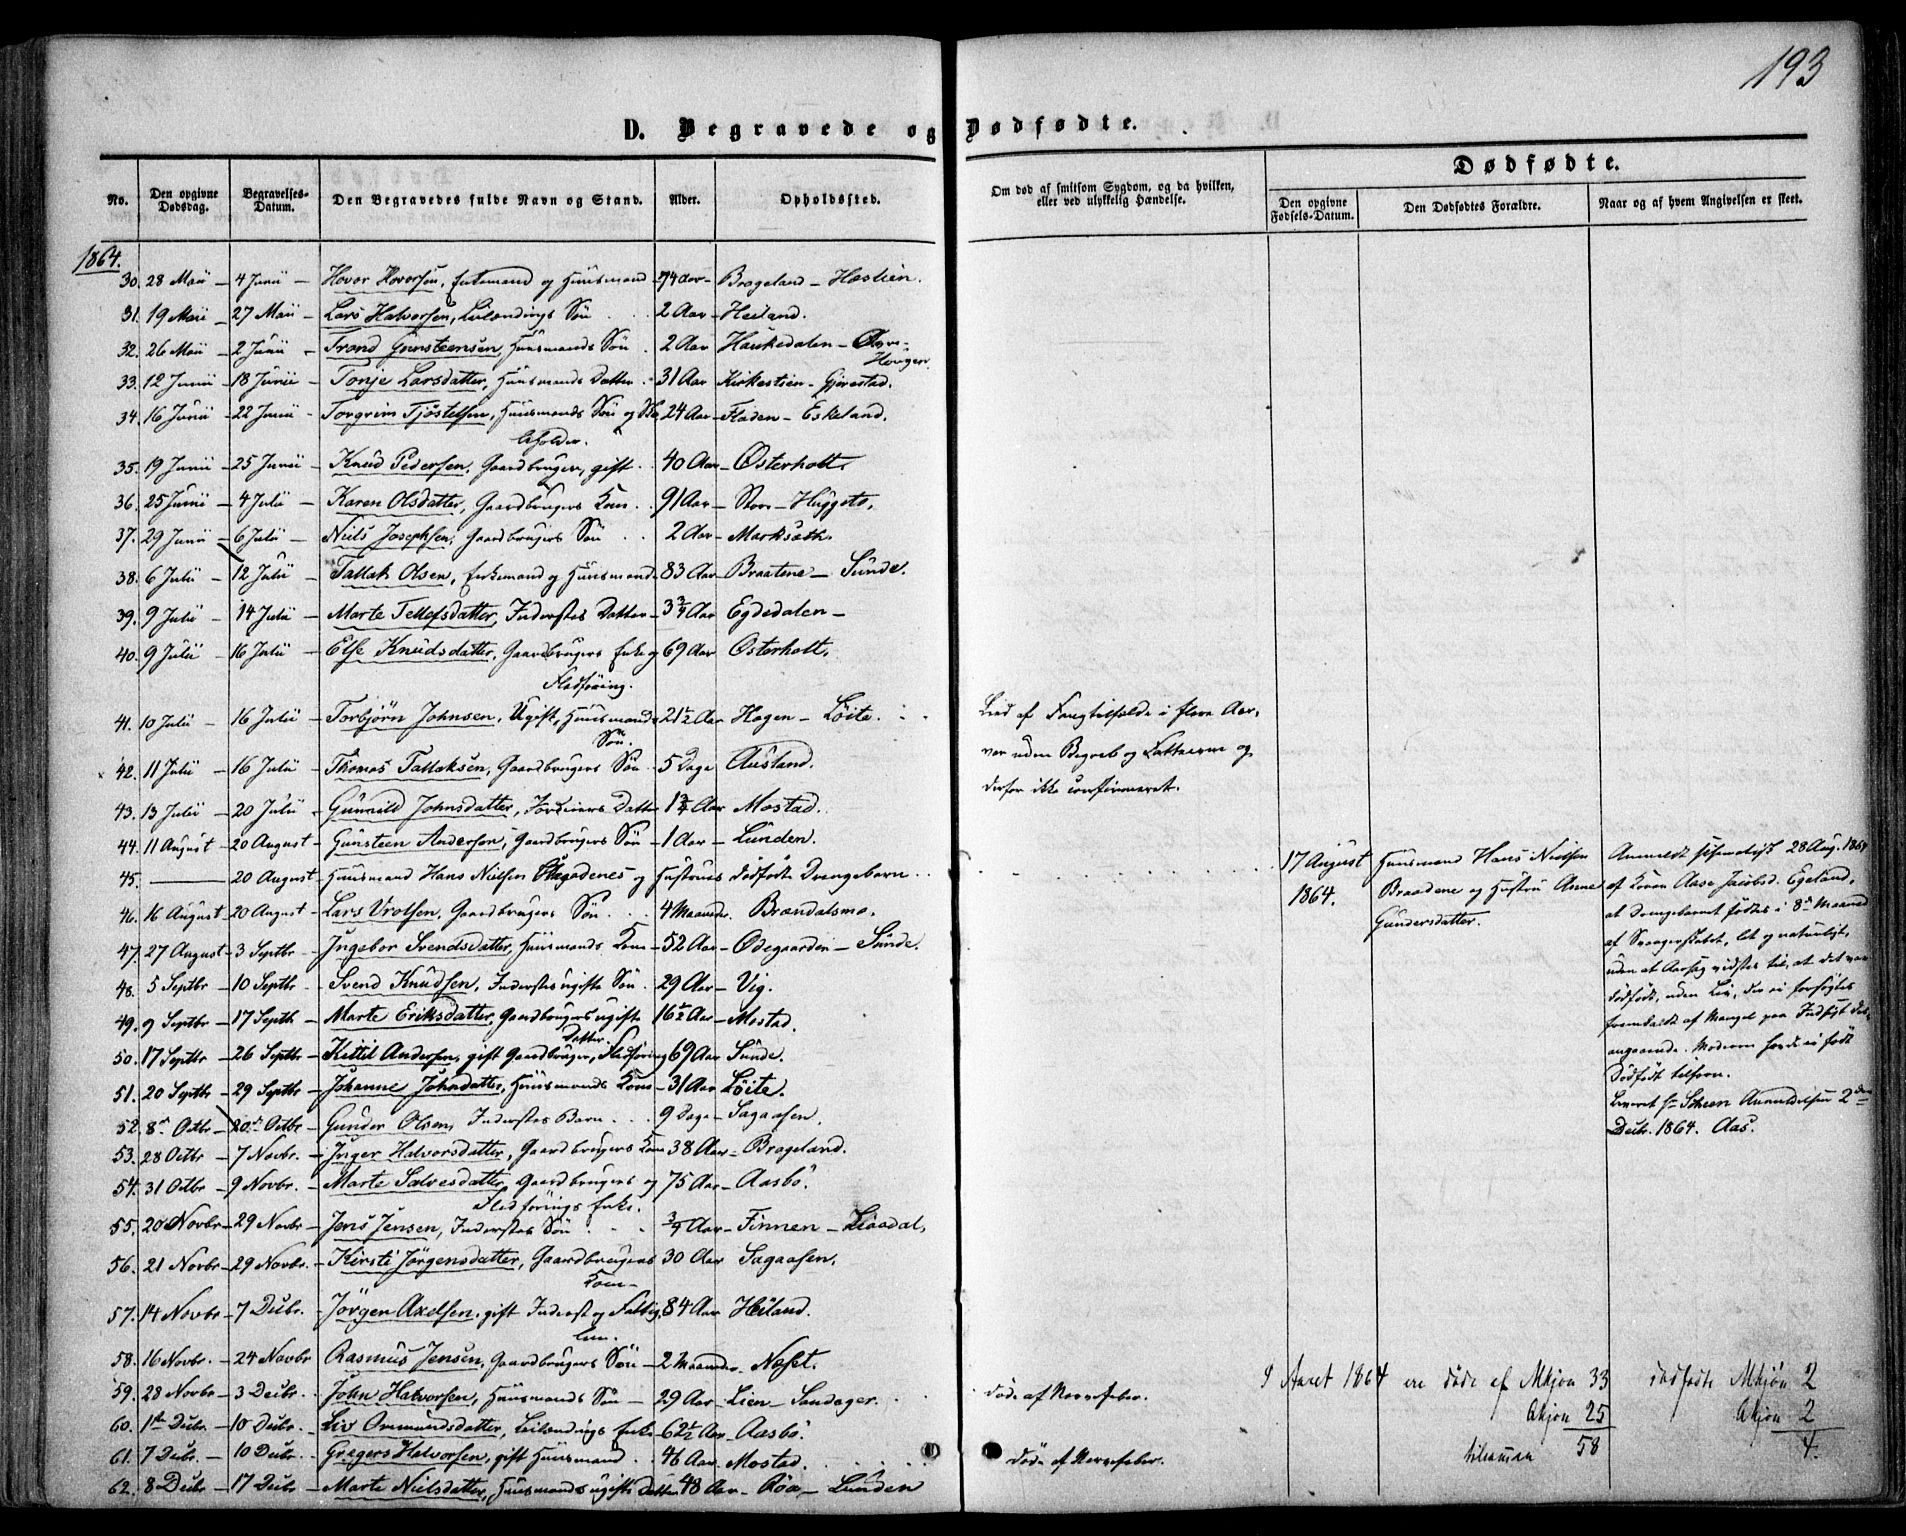 193
D. Begravede og Dødfødte.
No.
Den opgivne Dødsdag.
Begravelses-Datum.
Den Begravedes fulde Navn og Stand.
Alder.
Opholdssted.
Om død af smitsom Sygdom, og da hvilken, eller ved ulykkelig Hændelse.
Dødfødte.
Den opgivne Fødsels-Datum.
Den Dødfødtes Forældre.
Naar og af hvem Angivelsen er skeet.
1864.
30. 28 Maii – 4 Junii – Hovor Hovorsen, Enkemand og Huusmand 74 Aar – Brageland – Hæstien.
31. 19 Maii – 27 Maii – Lars Halvorsen, Leilændings Søn 2 Aar – Heiland.
32. 26 Maii – 2 Junii – Trond Gunsteensen, Huusmands Søn 2 Aar – Haukedalen – Øvre-
Hougen.
33. 12 Junii – 18 Junii – Tonje Larsdatter, Huusmands Datter 31 Aar – Kirkestien – Gjerestad.
34. 16 Junii – 22 Junii – Torgrim Tjøstelsen, Huusmands Søn og Sko
leholder. 24 Aar – Fladen – Eskeland.
35. 19 Junii – 25 Junii – Knud Pedersen, Gaardbruger, gift 40 Aar – Østerholt.
36. 25 Junii – 4 Julii – Karen Olsdatter, Gaardbrugers Kone 91 Aar – Store – Huggsto.
37. 29 Junii – 6 Julii – Niels Josephsen, Gaardbrugers Søn 2 Aar – Marksæth.
38. 6 Julii – 12 Julii – Tallak Olsen, Enkemand og Huusmand 83 Aar – Braatene – Sunde.
39. 9 Julii – 14 Julii – Marte Tellefsdatter, Inderstes Datter 3 3/4 Aar – Egdedalen –
40. 9 Julii – 16 Julii – Else Knudsdatter, Gaardbrugers Enke og
Fladføring. 69 Aar – Østerholt.
41. 10 Julii – 16 Julii – Torbjørn Johnsen, Ugift, Huusmands
Søn. 21 1/2 Aar – Hagen – Løite.
42. 11 Julii – 16 Julii – Thomas Tallaksen, Gaardbrugers Søn 5 Dage Ausland.
43. 13 Julii – 20 Julii – Gunnild Johnsdatter, Datter 1 3/4 Aar Mostad.
44. 11 August – 20 August – Gunsteen Andersen, Gaardbrugers Søn – 1 Aar – Lunden.
45. – 20 August – Huusmand Hans Nielsen Braadenes og Hustrues dødfødte Drengebarn
46. 16 August – 20 August – Lars Vrolsen, Gaardbrugers Søn 4 Maaneder Brændalsmo.
47. 27 August – 3 Septbr – Ingebor Svendsdatter, Huusmands Kone – 52 Aar – Ødegaarden – Sunde.
48. 5 Septbr – 10 Septbr – Svend Knudsen, Inderstes ugifte Søn 29 Aar – Vig.
49. 9 Septbr – 17 Septbr – Marte Eriksdatter, Gaardbrugers ugifte
Datter. 16 1/2 Aar – Mostad.
50. 17 Septbr – 26 Septbr – Kittil Andersen, gift Gaardbruger, Fladføring 69 Aar – Sunde.
51. 20 Septbr – 29 Septbr – Johanne Johnsdatter, Huusmands Kone – 31 Aar – Løite.
52. 8de Octbr – 20de Octbr – Gunder Olsen, Inderstes Barn 9 Dage – Sagaasen.
53. 28 Octbr – 7 Novbr. – Inger Halvorsdatter, Gaardbrugers Kone 38 Aar – Brageland.
54. 31 Octbr – 9 Novbr. – Marte Salvesdatter, Gaardbrugers og
Fladførings Enke. 75 Aar – Aasbø.
55. 20 Novbr – 29 Novbr – Jens Jensen, Inderstes Søn 3/4 Aar – Finnen – Liaadal.
56. 21 Novbr – 29 Novbr. – Kirsti Jørgensdatter, Gaardbrugers
Kone – 30 Aar – Sagaasen.
57. 14 Novbr – 7 Decbr. – Jørgen Axelsen, gift Inderst og Fattig
lem. 84 Aar – Heiland.
58. 16 Novbr. – 24 Novbr Rasmus Jensen, Gaardbrugers Søn – 2 Maaneder Næset.
59. 28 Novbr – 3 Decbr. – John Halvorsen, Huusmands Søn – 29 Aar – Lien – Sandager.
60. 1ste Decbr. – 10 Decbr. – Liv Ommundsdatter, Leilændings Enke 62 1/2 Aar – Aasbø.
61. 7 Decbr. – 10 Decbr. – Gregers Halvorsen, gift Huusmand 46 Aar – Mostad.
62. 8 Decbr. – 17 Decbr – Marte Nielsdatter, Huusmands ugifte Datter 48 Aar – Røa – Lunden
Leed af i flere Aar,
var uden Begreb og Fatteevne og
derfor ikke confirmeret.
døde af Nervefeber.
døde af Nervefeber.
17 August
1864.
Huusmand Hans Nielsen
Braadene og Hustru Anne
Gundersdatter.
Anmeldt 28 Aug. 1864
af Konen Aase Jacobsd. Egeland,
at Drengebarnet fødtes i 8de Maaned
af Svangerskabet, let og naturligt,
uden at Aarsag vidstes til, at det var
dødfødt, uden Liv, der ei forsøgtes
fremkaldt af Mangel paa Indsigt des-
angaaende. Moderen havde ei født
Dødfødt tilforn.
Leveret Hr Scheen Anmeldelsen 2den
Decbr. 1864. Aas.
I Aaret 1864 ere døde af Mkjøn 33 dødfødte Mkjøn 2
Qkjøn 25 Qkjøn 2
tilsamman 58 4.